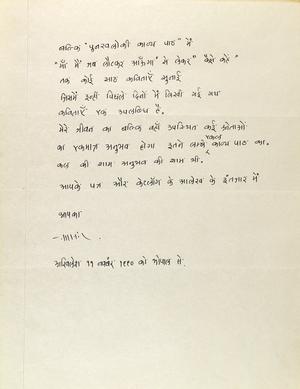 बल्कि "पुनरवलोकी काव्य पाठ" में
"माँ मैं जब लौटकर आऊँगा" से लेकर "कैसे कहें"
तक कोई साठ कविताएँ सुनाईं
जिसमें इन्हीं पिछले दिनों में लिखी गई गद्य
कविताएँ एक उपलब्धि है.
मेरे जीवन का बल्कि वहाँ उपस्थित कई श्रोताओं
का एकमात्र अनुभव होगा इतने लम्बे एकल काव्य पाठ का.
कल की शाम अनुभव की शाम थी.
आपके पत्र और केटलॉग के आलेख के इंतज़ार में
आपका
अखिलेश ११ नवंबर १९९० को भोपाल से.